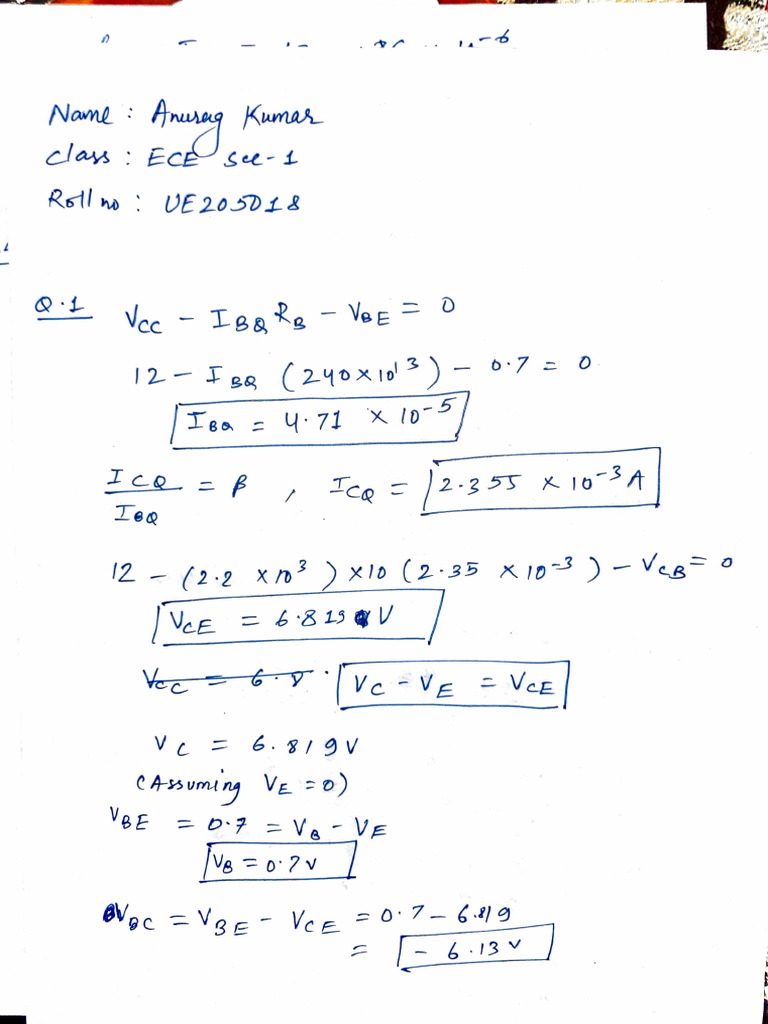 Name : Anurag Kumar
Class : ECE Sec-1
Roll no : UE205018
Q.1 VCC - IBQ RB - VBE = 0
12 - IBQ (240 × 10^3) - 0.7 = 0
IBQ = 4.71 × 10^-5
ICQ/IBQ = β , ICQ = 2.355 × 10^-3 A
12 - (2.2 × 10^3) × 10 (2.35 × 10^-3) - VCB = 0
VCE = 6.819 V
VCC = 6.8 . VC - VE = VCE
VC = 6.819 V
(Assuming VE = 0)
VBE = 0.7 = VB - VE
VB = 0.7 V
VBC = VBE - VCE = 0.7 - 6.819
= - 6.13 V